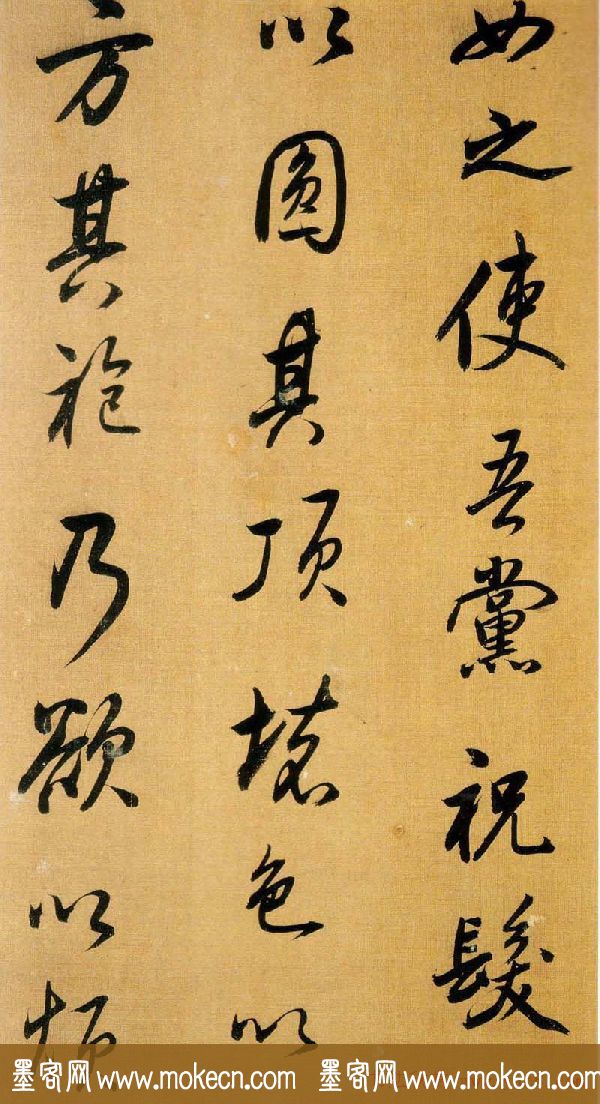 之使吾黨祝髮
以圓其頂壞色以
方其袍乃欲以
墨客网 www.mokecn.com 墨客网 www.mokecn.com